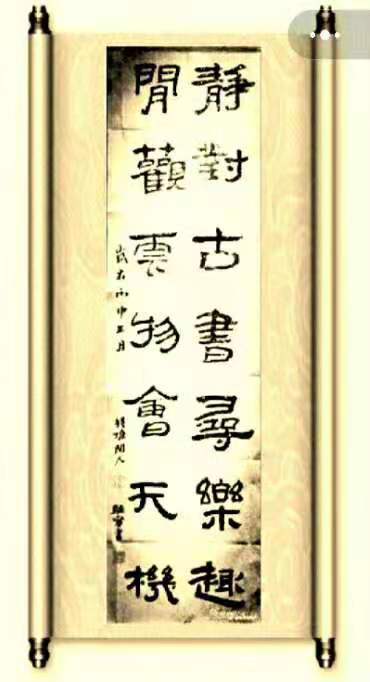 靜對古書尋樂趣
閒觀雲物會天機
歲在丙申